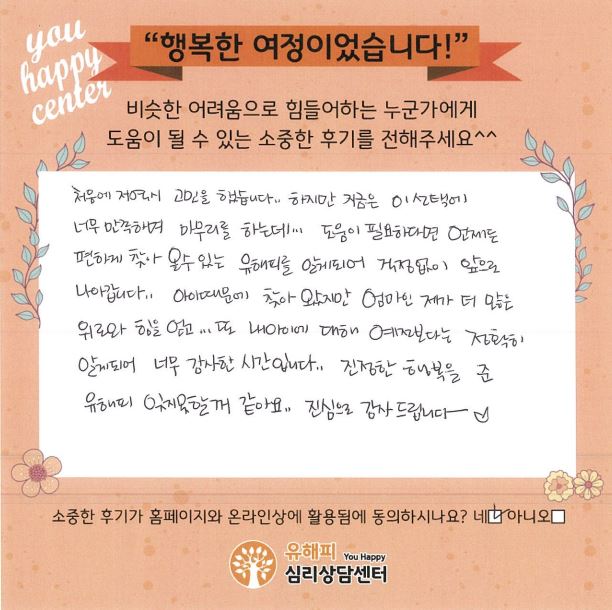 you
happy
center
“행복한 여정이었습니다!”
비슷한 어려움으로 힘들어하는 누군가에게
도움이 될 수 있는 소중한 후기를 전해주세요^^
처음에 고민을 했습니다.. 하지만 지금은 이 선택에
너무 만족하며 마무리를 하는데... 도움이 필요하다면 언제든
편하게 찾아 올수 있는 유해피를 알게되어 걱정없이 앞으로
나아갑니다.. 아이때문에 찾아 왔지만 엄마인 제가 더 많은
위로와 힘을 얻고... 또 내아이에 대해 예전보다는 정확히
알게되어 너무 감사한 시간입니다.. 진정한 행복을 준
유해피 잊지못할꺼 같아요.. 진심으로 감사드립니다~
소중한 후기가 홈페이지와 온라인상에 활용됨에 동의하시나요? 네☑ 아니오□
유해피 You Happy
심리상담센터